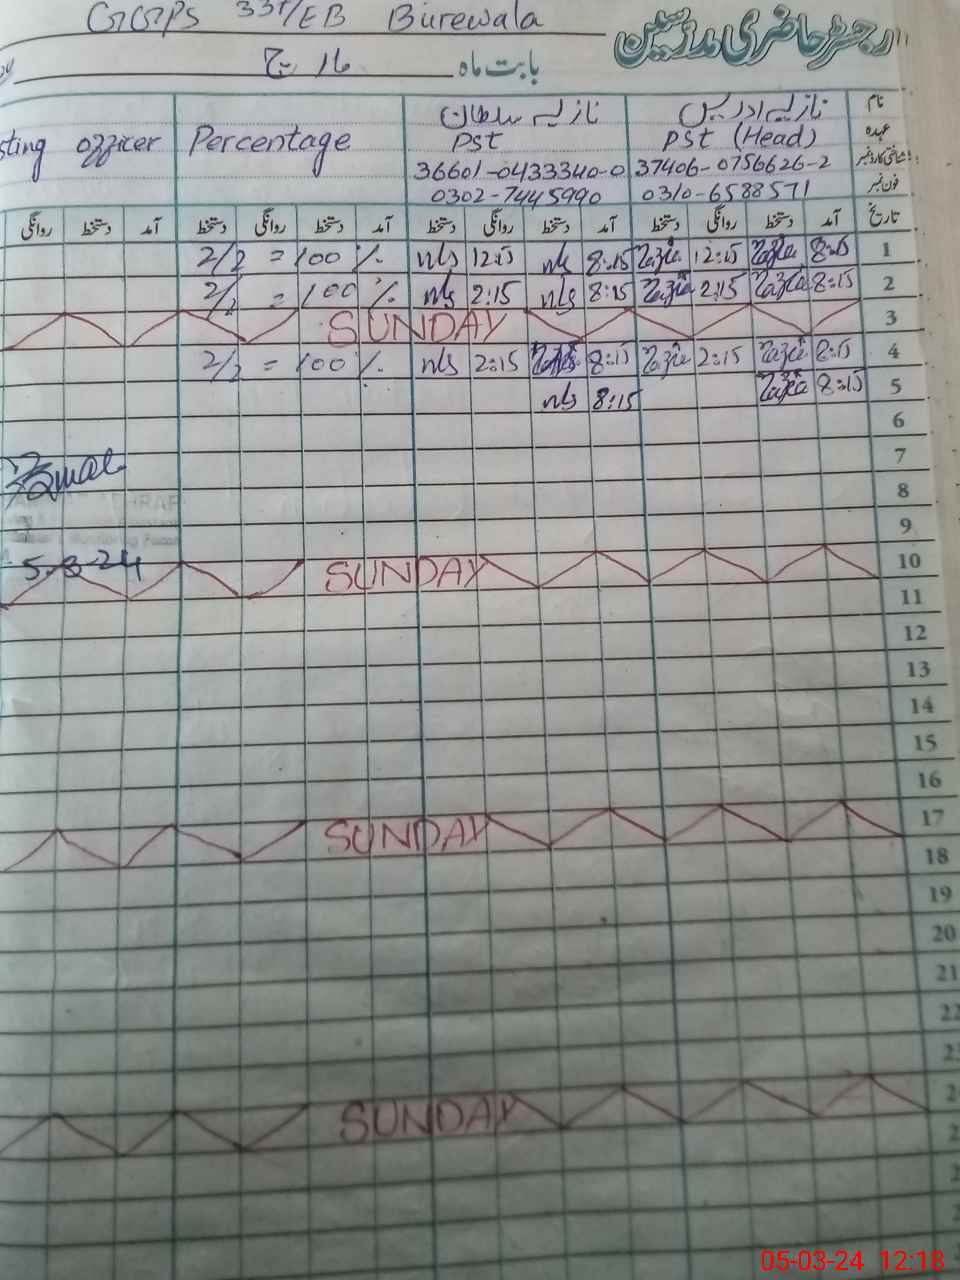 GGPS 33+/EB Burewala
رجسٹر حاضری مدرسین
بابت ماہ مارچ
نام نازیہ ادریس نازیہ سلطان
عہدہ PST (Head) PST Percentage sting officer
شناختی کارڈ نمبر 37406-0756626-2 36601-0433340-0
فون نمبر 0310-6588571 0302-7445990
تاریخ آمد دستخط روانگی دستخط آمد دستخط روانگی دستخط آمد دستخط روانگی دستخط آمد دستخط روانگی
2/2 = 100 % nls 12:15 nls 8:15 Nazia 12:15 Nazia 8:15 1
2/2 = 100 % nls 2:15 nls 8:15 Nazia 2:15 Nazia 8:15 2
SUNDAY 3
2/2 = 100 % nls 2:15 8:15 Nazia 2:15 Nazia 8:15 4
nls 8:15 Nazia 8:15 5
6
7
8
9
5-3-24 SUNDAY 10
11
12
13
14
15
16
SUNDAY 17
18
19
20
21
22
SUNDAY
05-03-24 12:18